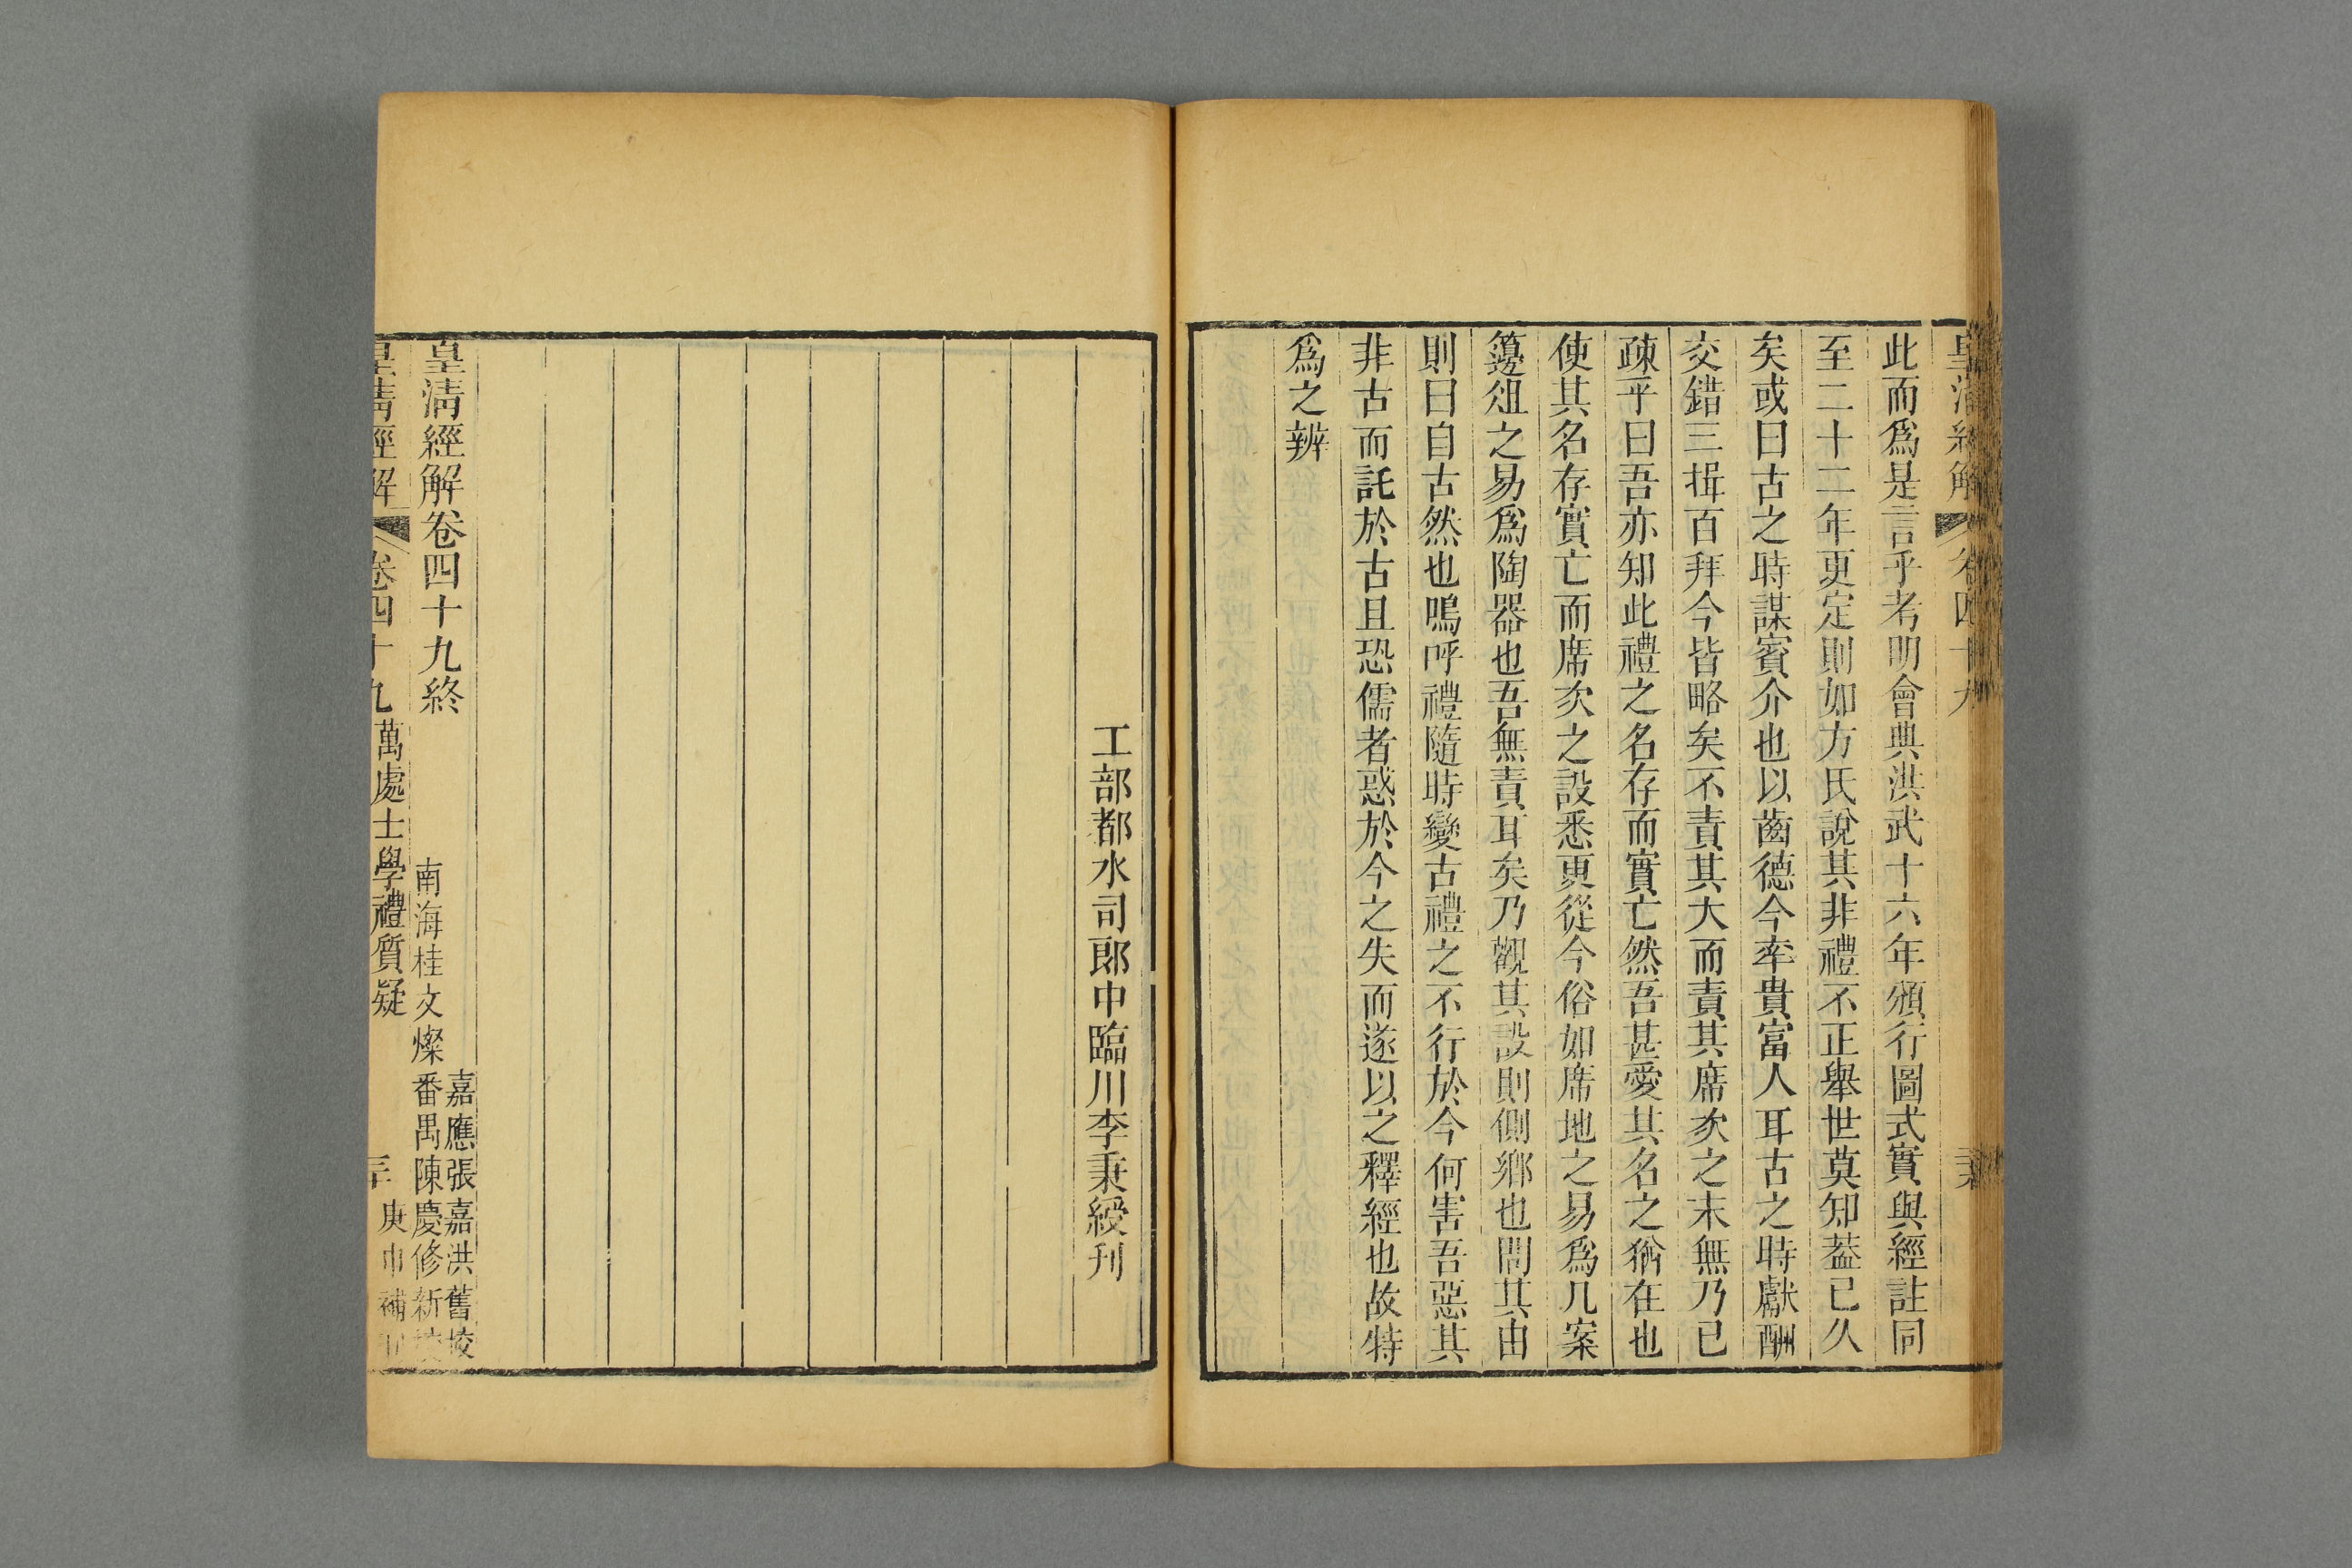 皇清經解 卷四十九
此而爲是言乎考明會典洪武十六年頒行圖式實與經註同
至二十二年更定則如方氏說其非禮不正舉世莫知葢已久
矣或曰古之時謀賓介也以齒德今率貴富人耳古之時獻酬
交錯三揖百拜今皆略矣不責其大而責其席次之末無乃已
疎乎曰吾亦知此禮之名存而實亡然吾甚愛其名之猶在也
使其名存實亡而席次之設悉更從今俗如席地之易爲几案
籩俎之易爲陶器也吾無責耳矣乃觀其設則側鄉也問其由
則曰自古然也嗚呼禮隨時變古禮之不行於今何害吾惡其
非古而託於古且恐儒者惑於今之失而遂以之釋經也故特
爲之辨
工部都水司郎中臨川李秉綬刊
皇清經解卷四十九終
嘉應張嘉洪舊挍
南海桂文燦番禺陳慶修新挍
皇清經解 卷四十九 萬處士學禮質疑 三十 庚申補刊